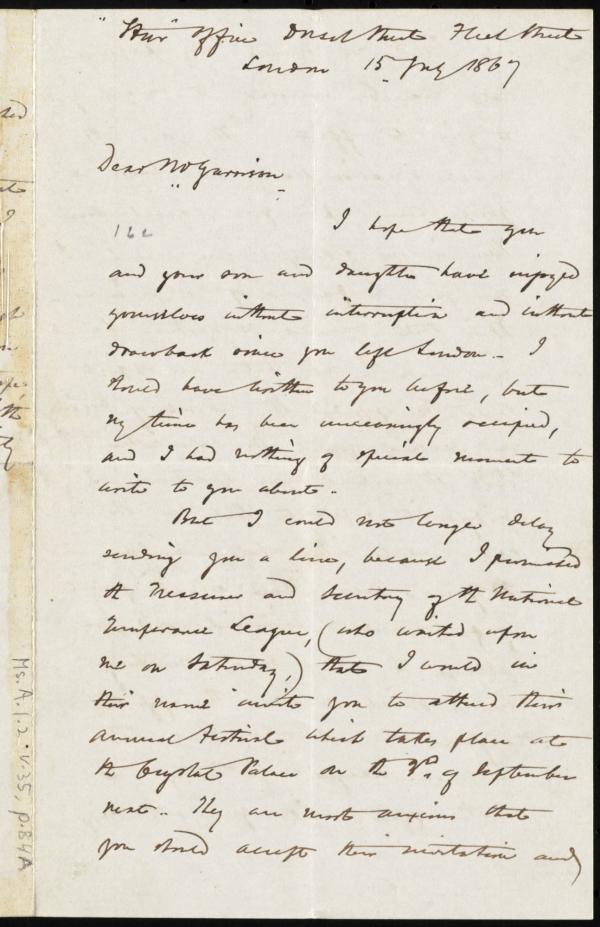 "Star" Office Dorset Street Fleet Street
London 15 July 1867
Dear Mr Garrison
162
I hope that you
and your son and daughter have enjoyed
yourselves without interruption and without
drawback since you left London. I
should have written to you before, but
my time has been unceasingly occupied,
and I had nothing of special moment to
write to you about.
But I could not longer delay
sending you a line, because I promised
the Treasurer and Secretary of the National
Temperance League, (who waited upon
me on Saturday,) that I would in
their name invite you to attend their
annual Festival which takes place at
the Crystal Palace on the 3d. of September
next. They are most anxious that
you should accept their invitation and
Ms.A.1.2.v.35, p.84A